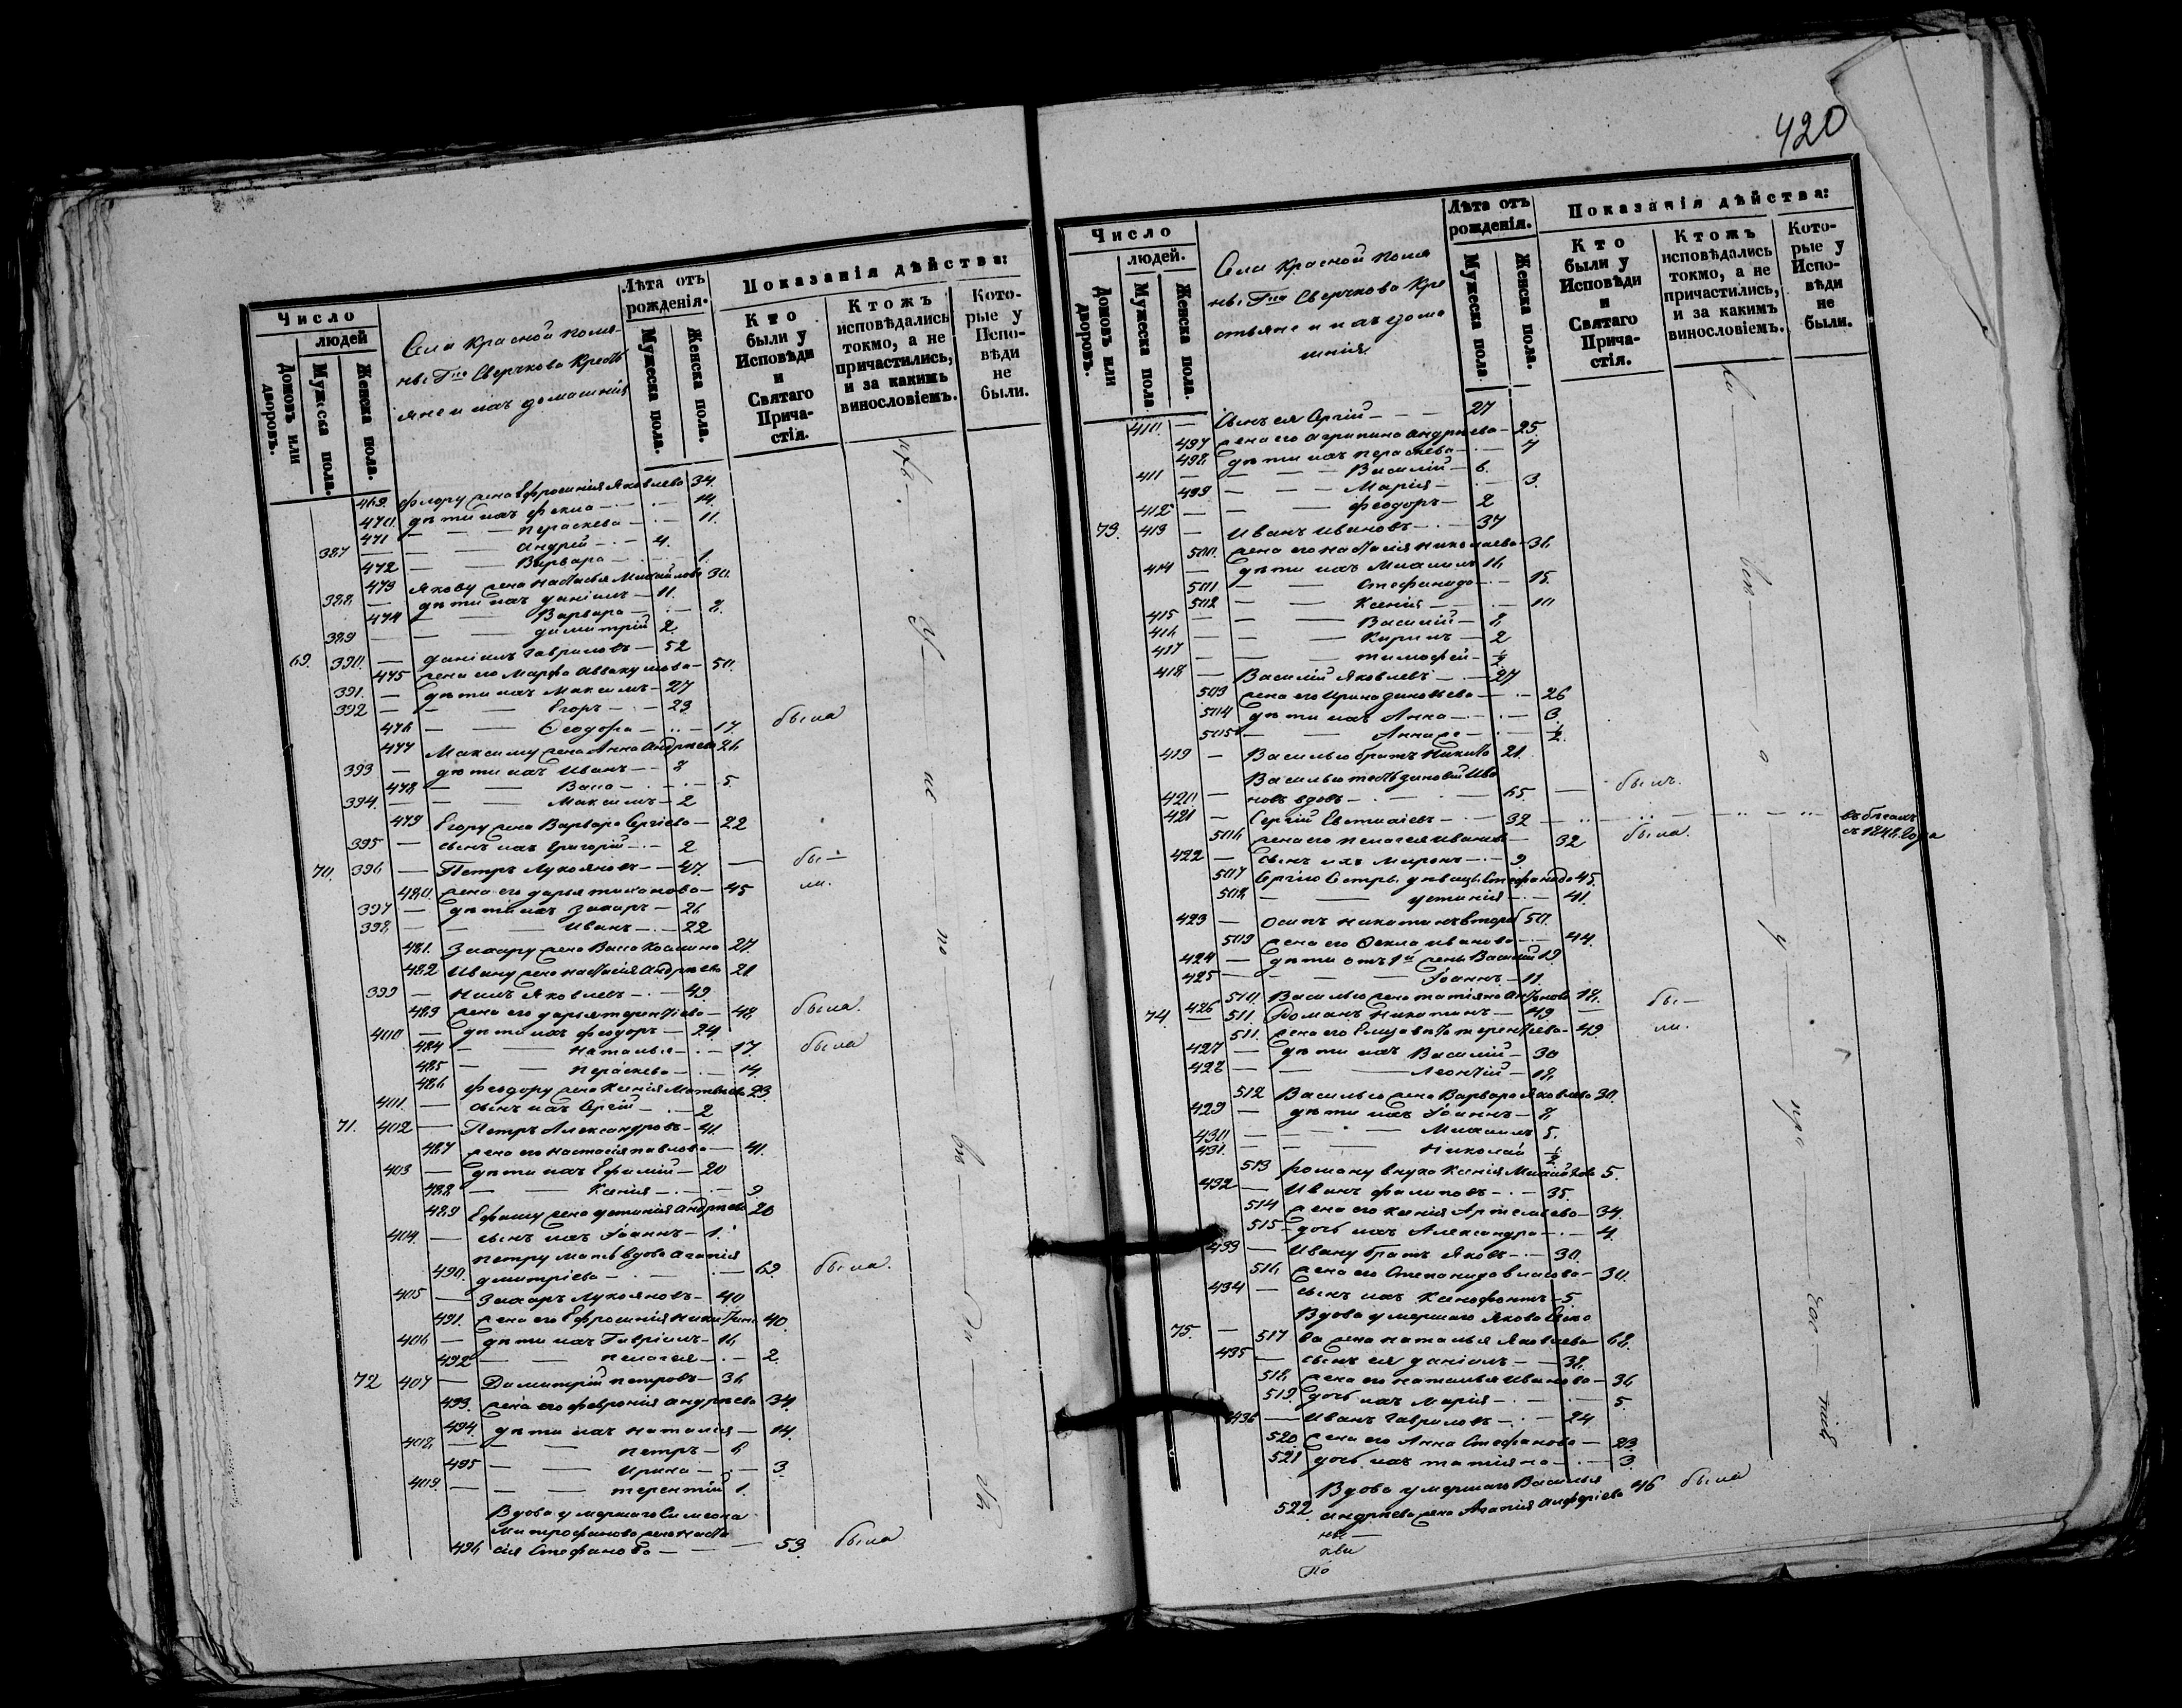 420
Число
людей
Домовъ или дворовъ.
Мужеска пола.
Женска пола.
Села Красной Поля-
нѣ Г-на Сверчкова Кресть
яне и ихъ домашнія
Лѣта отъ рожденія.
Мужеска пола.
Женска пола.
Показанія дѣйства:
Кто были у Исповѣди и Святаго Прича-стія.
Ктожъ исповѣдались токмо, а не причастились, и за какимъ винословіемъ.
Кото-рые у Испо-вѣди не были.
469. Флору жена Ефросинія Яковлева 34.
470. дѣти ихъ Фекла — 14.
471 — Параскева — 11.
387 — Андрей — 4.
472 — Варвара — 1.
473 Якову жена Настасья Михайлова 30.
388 — дѣти ихъ Даніилъ — 11.
474 — Варвара — 8.
389 — Димитрій 2
69. 390. — Даніилъ Гавриловъ — 52
475 жена его Марфа Аввакумова — 50.
391. — дѣти ихъ Максимъ — 27
392 — Егоръ — 23
476 — Ѳеодора — 17. была
477 Максиму жена Анна Андреева 26
393 — дѣти ихъ Иванъ — 8
478 — Васса — 5.
394. — Максимъ — 2
479 Егору жена Варвара Сергіева — 22
395 — сынъ ихъ Григорій — 2
70. 396 — Петръ Лукояновъ — 47. — бы-
480. жена его Дарья Тихонова — 45 ли.
397 — дѣти ихъ Захаръ — 26
398 — Иванъ — 22
481. Захару жена Васса Косьмина 27.
482 Ивану жена Настасія Андреева 21
399 — Яковлевъ — 49.
483 жена его Дарья Терентіева — 48 была.
400 — дѣти ихъ Феодоръ — 24.
484 — Наталья — 17. была
485 — Параскева — 14
486 Феодору жена Ксенія Матвѣева 23.
401. — сынъ ихъ Сергій — 2
71. 402 — Петръ Александровъ — 41.
487 жена его Настасія Павлова — 41.
403 — дѣти ихъ Ефимій — 20
488 — Ксенія — 9.
489 Ефиму жена Устинія Андреева 20
404. — сынъ ихъ Іоаннъ — 1.
Петру мать вдова Агапія
490. Дмитріева — 69. была.
405 — Захаръ Лукояновъ — 40
491. жена его Ефросинія Никитина 40.
406 — дѣти ихъ Гавріилъ — 16
492 — Пелагея — 2.
72 407 — Димитрій Петровъ — 36
493. жена его Феврония Андреева 34.
494. дѣти ихъ Наталія — 14.
408 — Петръ — 6
495 — Ирина — 3.
409. — Терентій 1.
Вдова умершаго Симеона
Митрофанова жена Наста
496 сія Стефанова — 53. была
Число
людей.
Домовъ или дворовъ.
Мужеска пола
Женска пола.
Села Красной Поля
нѣ Г-на Сверчкова Кре
стьяне и ихъ дома
шнія
Лѣта отъ рожденія.
Мужеска пола.
Женска пола.
Показанія дѣйства:
Кто были у Исповѣди и Святаго Прича-стія.
Ктожъ исповѣдались токмо, а не причастились, и за какимъ винословіемъ.
Кото-рые у Испо-вѣди не были.
410. — Сынъ ея Сергій — 27
497 жена его Агрипина Андреева — 25.
498 дѣти ихъ Параскева — 7
411 — Василій — 6.
499 — Марія — 3.
412 — Феодоръ — 2
73. 413 — Иванъ Ивановъ — 37
500. жена его Настасія Николаева — 36
414 — дѣти ихъ Михаилъ 16
501 — Стефанида — 15.
502 — Ксенія — 10
415 — Василій — 8
416 — Кирилъ — 2
417 — Тимофей — ½
418 — Василій Яковлевъ — 27
503 жена его Ирина Зиновьева — 26
504 дѣти ихъ Анна — 3.
505 — — ½
419 — Василью братъ Никита 21.
Василью тесть Зиновій Ива
420 — новъ вдовъ — 65. — былъ.
421 — Сергій Евстигнѣевъ — 32 — въ бѣгахъ съ 1848 года
506 жена его Пелагея Иванова — 32 была.
422 — сынъ ихъ Миронъ — 9
507 Сергію сестры дѣвицы Стефанида 45.
508 — Устинія — 41.
423 — Осипъ Никитинъ вторый 50.
509 жена его Ѳекла Иванова — 44.
424 — дѣти отъ 1й жены Василій 19
425 — Іоаннъ — 11.
510. Василью жена Татіяна Антонова 18.
74. 426 — 511. Романъ Никитинъ — 49 — бы-
511. жена его Елизавета Терентіева — 49. ли.
427 — дѣти ихъ Василій — 30
428 — Леонтій — 18
512 Василью жена Варвара Яковлева 30.
429 — дѣти ихъ Іоаннъ — 8.
430 — Михаилъ 5.
431. — Николай ½
513 Роману внука Ксенія Михайлова 5.
432 — Иванъ Филиповъ — 35.
514 жена его Ксенія Артемьева — 34.
515 дочь ихъ Александра — 4.
433 — Ивану братъ Яковъ — 30.
516 жена его Степанида Власова — 30.
434 — сынъ ихъ Ксенофонтъ — 5
Вдова умершаго Якова
75. — 517 ва жена Наталья Яковлева — 68.
435 — сынъ ея Даніилъ — 38.
518 жена его Наталья Иванова — 36
519. дочь ихъ Марія — 5.
436 — Иванъ Гавриловъ — 24
520. жена его Анна Стефанова — 23
521 дочь ихъ Татіяна — 3.
Вдова умершаго Василья
522 Андреева жена Агапія 46 была